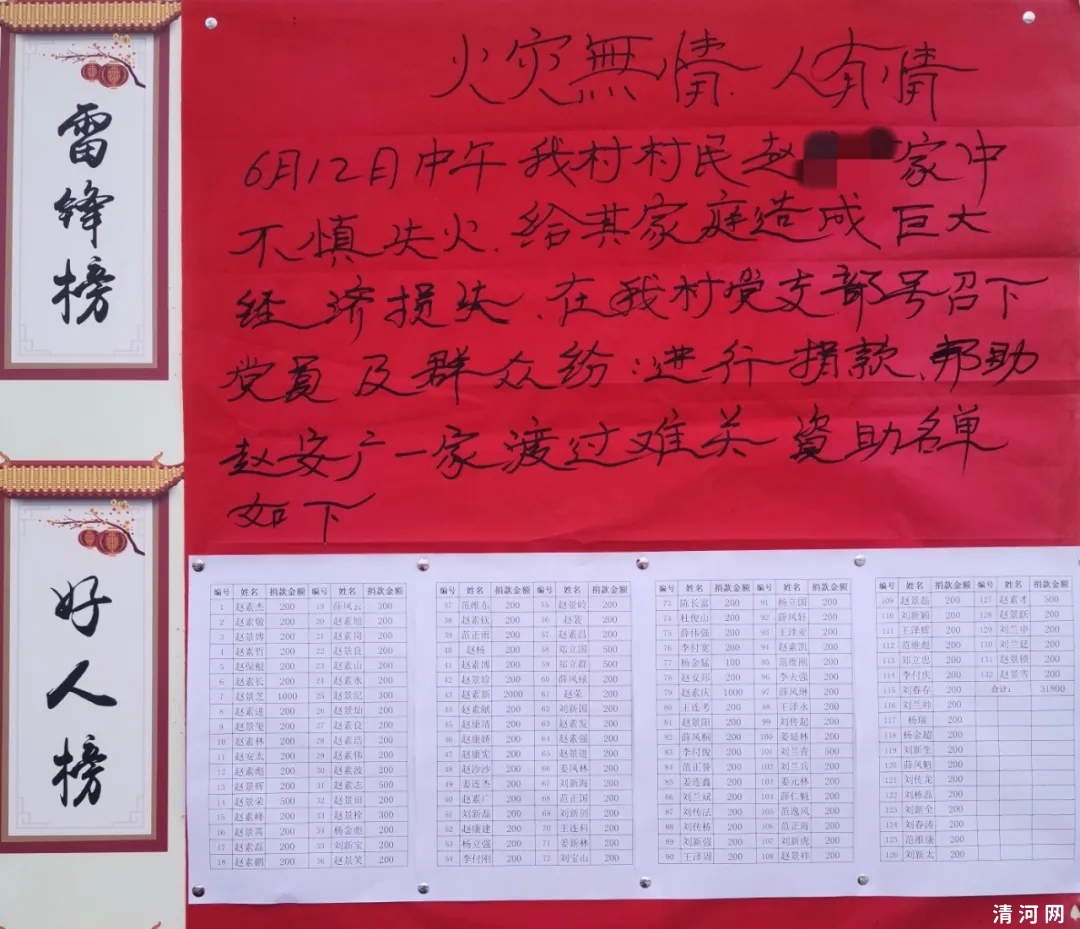 雷锋榜
好人榜
火灾無情 人有情
6月12日中午 我村村民赵 家中
不慎失火.给其家庭造成巨大
经济损失、在我村党支部号召下
党员及群众纷:进行捐款、帮助
赵安广一家渡过难关 資助名单
如下
编号 姓名 捐款金额 编号 姓名 捐款金额
1 赵素杰 200 19 薛风云 300
2 赵素敬 200 20 赵素旭 200
3 赵景博 200 21 赵素岗 200
4 赵素哲 200 22 赵景良 200
5 赵保根 200 23 赵素山 200
6 赵素长 200 24 赵素水 200
7 赵景芝 1000 25 赵景纪 300
8 赵素进 200 26 赵景灿 200
9 赵景玺 200 27 赵素良 200
10 赵素林 200 28 赵素浩 200
11 赵安太 200 29 赵素伟 200
12 赵素彪 200 30 赵素波 200
13 赵景辉 200 31 赵素志 500
14 赵景荣 500 32 赵景田 200
15 赵素峰 200 33 赵景栓 300
16 赵景 200 34 杨金彪 200
17 赵素磊 200 35 刘新宝 200
18 赵素鹏 200 36 赵景笑 200
编号 姓名 捐款金额 编号 姓名 捐款金额
37 范维东 200 55 赵景岭 200
38 赵素钦 200 56 赵装 200
39 范正雨 200 57 赵素昌 200
40 赵杨 200 58 郑立国 500
41 赵素博 200 59 郑立群 500
42 赵景珍 200 60 薛风禄 200
43 赵素新 2000 61 赵荣 200
44 赵素献 200 62 刘新国 200
45 赵康清 200 63 赵素发 200
46 赵康娇 200 64 赵素强 200
47 赵康宪 200 65 赵景进 200
48 赵沙沙 200 66 姜风林 200
49 姜连杰 200 67 刘新海 200
50 赵素广 200 68 范正国 200
51 刘新磊 200 69 刘新剑 200
52 赵康建 200 70 王连科 200
53 杨立强 200 71 姜新林 200
54 李付刚 200 72 刘宝山 200
编号 姓名 捐款金额 编号 姓名 捐款金额
73 陈长富 200 91 杨立国 200
74 杜俊山 200 92 薛风轩 200
75 薛伟强 200 93 王泽亚 200
76 李付宽 200 94 赵素凯 200
77 杨金猛 100 95 范维刚 200
78 赵安邦 200 96 李大强 200
79 赵素庆 1000 97 薛风琳 200
80 王连考 200 98 王泽水 200
81 赵景阳 200 99 刘传起 200
82 薛风桐 200 100 姜延林 200
83 李付俊 200 101 刘兰青 500
84 范正誉 200 102 刘兰兵 200
85 姜连鑫 200 103 姜元林 200
86 刘兰斌 200 104 薛仁魁 200
87 刘传法 200 105 范逸风 200
88 刘传杨 200 106 范正海 200
89 刘新强 200 107 刘新虎 200
90 王泽周 200 108 赵景祥 200
编号 姓名 捐款金额 编号 姓名 捐款金额
109 赵景磊 200 127 赵素才 500
110 刘新颖 200 128 赵景跃 200
111 王泽辉 200 129 刘兰华 200
112 范维彪 200 130 刘兰廷 200
113 郑立忠 200 131 赵景锁 200
114 李付庆 200 132 赵景雪 200
115 刘春存 200 合计: 31800
116 刘兰帅 200
117 杨瑞 200
118 杨金超 200
119 刘新生 200
120 薛风魁 200
121 刘传龙 200
122 刘栋磊 200
123 刘新全 200
124 刘春涛 200
125 范维康 200
126 刘新太 200
清河网